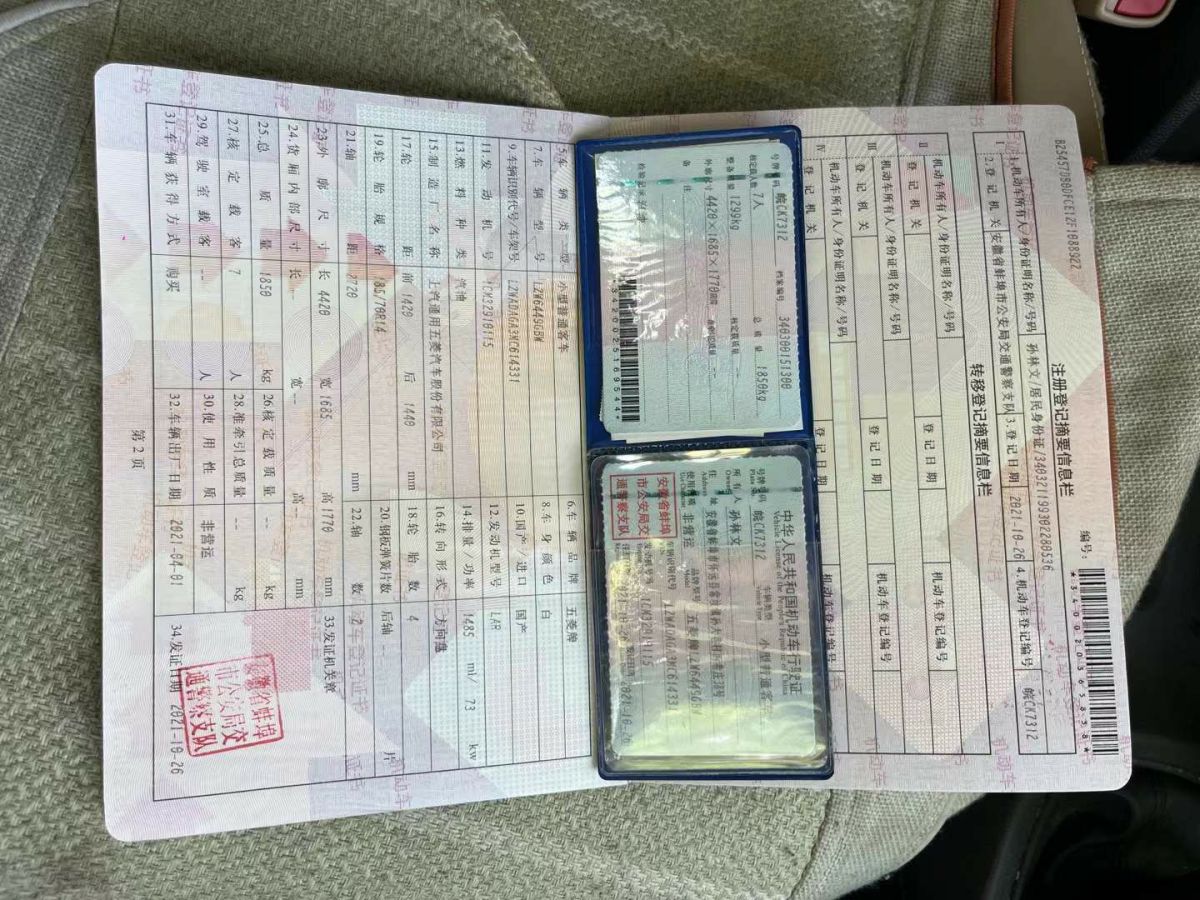 注册登记摘要信息栏
编号:
B25457D80DFCE12F1088922
Ⅰ 1.机动车所有人/身份证明名称/号码 孙林文/居民身份证/340321199302280536
2.登记机关 安徽省蚌埠市公安局交通警察支队 3.登记日期 2021-10-26 4.机动车登记编号 皖CK7312
转移登记摘要信息栏
Ⅱ 机动车所有人/身份证明名称/号码
登记机关 登记日期 机动车登记编号
Ⅲ 机动车所有人/身份证明名称/号码
登记机关 登记日期 机动车登记编号
Ⅳ 机动车所有人/身份证明名称/号码
登记机关 登记日期 机动车登记编号
号牌号码 皖CK7312 档案编号 340300151300
核定载人数 7人 总质量 1850kg
整备质量 1299kg 核定载质量 --
外廓尺寸 4420×1685×1770mm 准牵引总质量 --
备注
检验记录
中华人民共和国机动车行驶证
Vehicle License of the People's Republic of China
号牌号码 皖CK7312 车辆类型 小型普通客车
所有人 孙林文
Owner
住址
Address
使用性质 非营运 品牌型号 五菱牌LZW6449GBW
安徽省蚌埠
市公安局交
通警察支队
车辆识别代号 LZWADAGA3MC614331
发动机号码
5.车辆类型 小型普通客车 6.车辆品牌 五菱牌
7.车辆型号 LZW6449GBW 8.车身颜色 白
9.车辆识别代号/车架号 LZWADAGA3MC614331 10.国产/进口 国产
11.发动机号 12.发动机型号 LAR
13.燃料种类 汽油 14.排量/功率 1485 ml/ 73 kw
15.制造厂名称 上汽通用五菱汽车股份有限公司 16.转向形式 方向盘
17.轮距 前 1420 后 1440 mm 18.轮胎数 4
19.轮胎规格 185/70R14 20.钢板弹簧片数 后轴 -- 片
21.轴距 2720 mm 22.轴数 2
23.外廓尺寸 长 4420 宽 1685 高 1770 mm 33.发证机关章
24.货厢内部尺寸 长 -- 宽 -- 高 -- mm
25.总质量 1850 kg 26.核定载质量 -- kg
27.核定载客 7 人 28.准牵引总质量 -- kg
29.驾驶室载客 -- 人 30.使用性质 非营运
31.车辆获得方式 购买 32.车辆出厂日期 2021-04-01 34.发证日期 2021-10-26
安徽省蚌埠
市公安局交
通警察支队
第2页